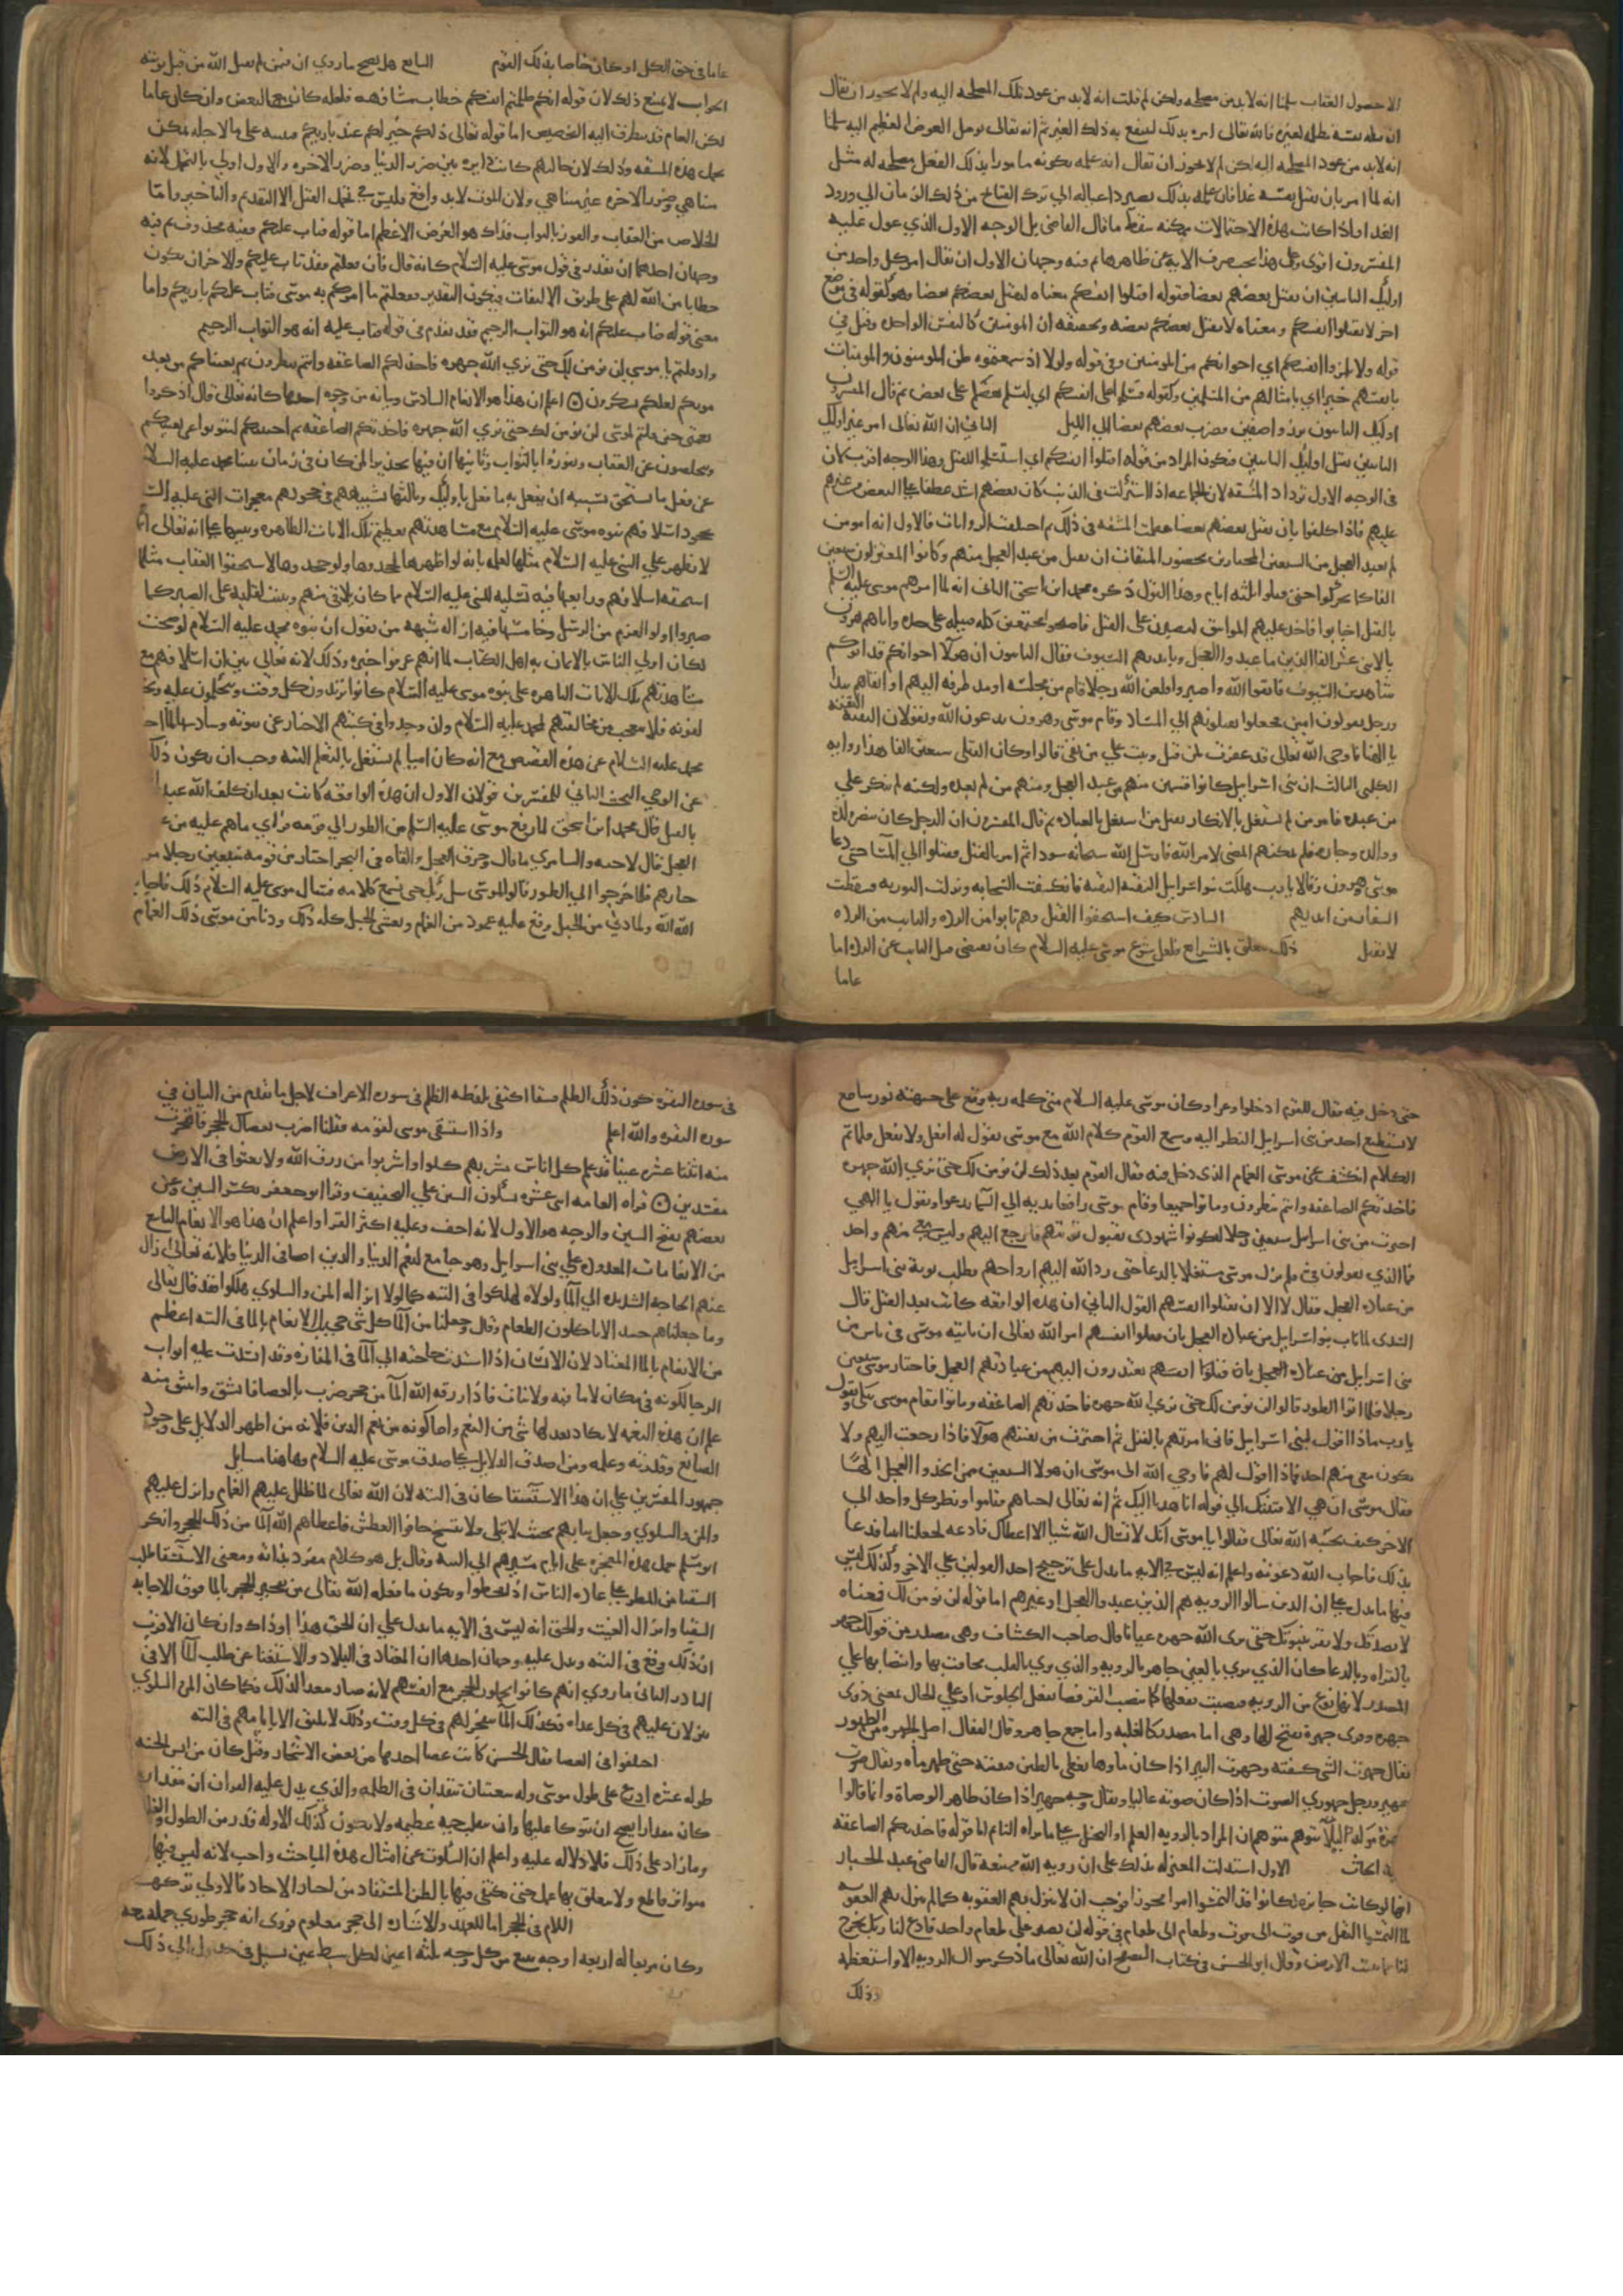 الا حصول العقاب سلمنا انه لابد من مصلحه ولكن لم قلت انه لابد من عود تلك المصلحه اليه ولم لا يجوز ان يقال
ان قتله نفسه مصلحه لغيره فالله تعالى امره بذلك لينتفع به ذلك الغير ثم انه تعالى يوصل العوض العظيم اليه سلمنا
انه لابد من عود المصلحه اليه لكن لم لا يجوز ان يقال انه علمه بكونه مامورا بذلك الفعل مصلحه له مثل
انه لما امر بان يقتل نفسه غدا فان علمه بذلك يصير داعيا له الي ترك القبائح من ذلك الزمان الي ورود
الغد واذا كانت هذه الاحتمالات ممكنه سقط ما قال القاضي بل الوجه الاول الذي عول عليه
المفسرون اقوى وعلى هذا يجب صرف الايه عن ظاهرها ثم فيه وجهان الاول ان يقال امر كل واحد من
اوليك التايبين ان يقتل بعضهم بعضا فقوله اقتلوا انفسكم معناه ليقتل بعضكم بعضا وهو كقوله في موضع
اخر لا تقتلوا انفسكم ومعناه لا يقتل بعضكم بعضا وتحقيقه ان المومنين كالنفس الواحده وقيل في
قوله ولا تلمزوا انفسكم اي اخوانكم من المومنين وفي قوله ولولا اذ سمعتموه ظن المومنون والمومنات
بانفسهم خيرا اي بامثالهم من المسلمين وكقوله فسلموا على انفسكم اي ليسلم بعضكم على بعض ثم قال المفسرون
اوليك التايبون برزوا صفين فضرب بعضهم بعضا الي الليل الثاني ان الله تعالى امر غير اوليك
التايبين بقتل اوليك التايبين فيكون المراد من قوله اقتلوا انفسكم اي استسلموا للقتل وهذا الوجه اقرب لان
في الوجه الاول تزداد المشقه لان الجماعه اذا اشتركت في الذنب كان بعضهم اشد عطفا على البعض من غيرهم
عليهم فاذا كلفوا بان يقتل بعضهم بعضا عظمت المشقه في ذلك ثم اختلفت الروايات فالاول انه امر من
لم يعبد العجل من السبعين المختارين لحضور الميقات ان يقتل من عبد العجل منهم وكانوا المقتولون سبعين
الفا فما تحركوا حتى قتلوا ثلثه ايام وهذا القول ذكره محمد ابن اسحق الثاني انه لما امرهم موسى عليه السلم
بالقتل اجابوا فاخذ عليهم المواثيق ليصبرن على القتل فاصبحوا مجتمعين كل قبيله على حده واتاهم هرون
بالاثني عشر الفا الذين ما عبدوا العجل وبايديهم السيوف فقال التايبون ان هولاء اخوانكم قد اتوكم
شاهرين السيوف فاتقوا الله واصبروا فلعن الله رجلا قام من مجلسه او مد طرفه اليهم او اتقاهم بيد
ورجل يقولون امين فجعلوا يقتلونهم الي المساء وقام موسى وهرون يدعون الله ويقولان البقيه البقيه
يا الهنا فاوحى الله تعالى قد غفرت لمن قتل وتبت على من بقى قالوا وكان القتلى سبعين الفا هذا روايه
الكلبي الثالث ان بنى اسرايل كانوا قسمين منهم من عبد العجل ومنهم من لم يعبده ولكنه لم ينكر علي
من عبده فامر من لم يشتغل بالانكار بقتل من اشتغل بالعباده ثم قال المفسرون ان الرجل كان يبصر ولده
ووالده وجاره فلم يمكنهم المضي لامر الله فارسل الله سحابه سودا ثم امر بالقتل فقتلوا الي المساء حتى دعا
موسى وهرون وقالا يا رب هلكت بنو اسرايل البقيه البقيه فانكشفت السحابه ونزلت التوريه وسقطت
الشفار من ايديهم السادس كيف استحقوا القتل وهم تابوا من الرده والتايب من الرده
لا يقتل ذلك يتعلق بالشرايع فلعل شرع موسى عليه السلام كان يقتضي قتل التايب عن الرده اما
عاما
عاما في حق الكل او كان خاصا بذلك القوم السابع هل يصح ما روي ان منهم من لم يقتل الله من قبل توبته
الجواب لا يمتنع ذلك لان قوله انكم ظلمتم انفسكم خطاب مشافهه فلعله كان مع البعض وان كان عاما
لكن العام قد يتطرق اليه التخصيص اما قوله تعالى ذلكم خير لكم عند باريكم ففيه تنبيه على ما لاجله يمكن
تحمل هذه المشقه وذلك لان حالتهم كانت دايره بين ضرر الدنيا وضرر الاخره والاول اولي بالتحمل لانه
متناهي وضرر الاخره غير متناهي ولان الموت لابد واقع فليس في تحمل القتل الا التقديم والتاخير واما
الخلاص من العقاب والفوز بالثواب فذاك هو الغرض الاعظم اما قوله فتاب عليكم ففيه محذوف ثم فيه
وجهان احدهما ان يقدر في قول موسى عليه السلام كانه قال فان فعلتم فقد تاب عليكم والاخر ان يكون
خطابا من الله لهم على طريق الالتفات فيكون التقدير ففعلتم ما امركم به موسى فتاب عليكم باريكم واما
معنى قوله فتاب عليكم انه هو التواب الرحيم فقد تقدم في قوله فتاب عليه انه هو التواب الرحيم
واذ قلتم يا موسى لن نؤمن لك حتى نري الله جهره فاخذتكم الصاعقه وانتم تنظرون ثم بعثناكم من بعد
موتكم لعلكم تشكرون اعلم ان هذا هو الانعام السادس وبيانه من وجوه احدها كانه تعالى قال اذكروا
نعمتى حين قلتم لموسى لن نؤمن لك حتى نري الله جهره فاخذتكم الصاعقه ثم احييتكم لتتوبوا عن بغيكم
وتتخلصون عن العقاب وتفوزوا بالثواب وثانيها ان فيها تحذيرا لمن كان في زمان نبينا محمد عليه السلام
عن فعل ما يستحق بسببه ان يفعل به ما فعل باوليك وثالثها تشبيههم في جحودهم معجزات النبي عليه السلام
بجحود اسلافهم نبوه موسى عليه السلام مع مشاهدتهم لعظم تلك الايات الظاهره وتنبيها على انه تعالى انما
لا يظهر علي النبي عليه السلام مثلها لعلمه بانه لو اظهرها لجحدوها ولو جحدوها لاستحقوا العقاب مثل ما
استحقه اسلافهم ورابعها فيه تسليه للنبي عليه السلام مما كان يلاقى منهم وتثبيت لقلبه على الصبر كما
صبروا اولو العزم من الرسل وخامسها فيه ازاله شبهه من يقول ان نبوه محمد عليه السلام لو صحت
لكان اولي الناس بالايمان به اهل الكتاب لما انهم عرفوا خبره وذلك لانه تعالى بين ان اسلافهم مع
مشاهدتهم تلك الايات الباهره على نبوه موسى عليه السلام كانوا يرتدون كل وقت ويتحكمون عليه
لفونه فلا يتعجب من مخالفتهم لمحمد عليه السلام وان وجدوا في كتبهم الاخبار عن نبوته وسادسها لما اخبر
محمد عليه السلام عن هذه القصص مع انه كان اميا لم يشتغل بالتعلم البته وجب ان يكون ذلك
عن الوحي البحث الثاني للمفسرين قولان الاول ان هذه الواقعه كانت بعد ان كلف الله عبده
بالقتل قال محمد ابن اسحق لما رجع موسى عليه السلم من الطور الي قومه فراي ما هم عليه من
العجل قال لاخيه والسامري ما قال وحرق العجل والقاه في البحر اختار من قومه سبعين رجلا من
خيارهم فلما خرجوا الي الطور قالوا لموسى سل ربك حتى نسمع كلامه فسال موسى عليه السلام ذلك فاجابه
الله ولما دني من الجبل وقع عليه عمود من الغمام وتغشى الجبل كله ذلك ودنا من موسى ذلك الغمام
حتى دخل فيه فقال للقوم ادخلوا وعوا وكان موسى عليه السلام متى كلمه ربه وقع على جبهته نور ساطع
لا يستطيع احد من بنى اسرايل النظر اليه وسمع القوم كلام الله مع موسى يقول له افعل ولا تفعل فلما تم
الكلام انكشف عن موسى الغمام الذى دخل فيه فقال القوم بعد ذلك لن نؤمن لك حتى نري الله جهره
فاخذتكم الصاعقه وانتم تنظرون وماتوا جميعا وقام موسى رافعا يديه الي السما يدعوا ويقول يا الهي
اخترت من بني اسرايل سبعين رجلا ليكونوا شهودى بقبول توبتهم فارجع اليهم وليس معى منهم واحد
فما الذي يقولون في فلم يزل موسى مشتغلا بالدعا حتى رد الله اليهم ارواحهم وطلب توبة بنى اسرايل
من عباده العجل فقال لا الا ان يقتلوا انفسهم القول الثاني ان هذه الواقعه كانت بعد القتل قال
السدى لما تاب بنو اسرايل من عباده العجل بان يقتلوا انفسهم امر الله تعالى ان ياتيه موسى في ناس من
بنى اسرايل من عباده العجل بان قتلوا انفسهم يعتذرون اليهم من عبادتهم العجل فاختار موسى سبعين
رجلا فلما اتوا الطور قالوا لن نؤمن لك حتى نري الله جهره فاخذتهم الصاعقه وماتوا فقام موسى يبكي ويقول
يارب ماذا اقول لبنى اسرايل فانى امرتهم بالقتل ثم اخترت من بقيتهم هولاء فاذا رجعت اليهم ولا
يكون معى منهم احد فماذا اقول لهم فاوحى الله الى موسى ان هولا السبعين ممن اتخذوا العجل الها
فقال موسى ان هى الا فتنتك الي قوله انا هدنا اليك ثم انه تعالى احياهم فقاموا ونظر كل واحد الي
الاخر كيف يحيه الله تعالى فقالوا يا موسى انك لا تسال الله شيا الا اعطاك فادعه لجعلنا انبيا فدعا
بذلك فاجاب الله دعوته واعلم انه ليس في الايه ما يدل على ترجيح احد القولين علي الاخر وكذلك ليس
فيها ما يدل على ان الذين سالوا الرويه هم الذين عبدوا العجل او غيرهم اما قوله لن نومن لك فمعناه
لا نصدقك ولا نقر بنبوتك حتى نرى الله جهره عيانا قال صاحب الكشاف وهى مصدر من قولك جهر
بالقراه وبالدعا كان الذي يري بالعين جاهر بالرويه والذي يري بالقلب مخافت بها وانتصابها علي
المصدر لانها نوع من الرويه فنصبت بفعلها كما تنصب القرفصا بفعل الجلوس او على الحال بمعنى ذوى
جهره وقرى جهرة بفتح الها وهى اما مصدر كالغلبه واما جمع جاهر وقال القفال اصل الجهره من الظهور
يقال جهرت الشى كشفته وجهرت البير اذا كان ماوها مغطى بالطين فنقيته حتى ظهر ماه ويقال صوت
جهير ورجل جهوري الصوت اذا كان صوته عاليا ويقال وجه جهير اذا كان ظاهر الوضاة وانما قالوا
جهرة توكيدا ليلا يتوهم متوهم ان المراد بالرويه العلم او التخيل على ما يراه النايم اما قوله فاخذتكم الصاعقه
فيه ابحاث الاول استدلت المعتزله بذلك على ان رويه الله ممتنعه قال القاضى عبد الجبار
انها لو كانت جايزه لكانوا قد التمسوا امرا مجوزا فوجب ان لا تنزل بهم العقوبه كما لم تنزل بهم العقوبه
لما التمسوا النقل من قوت الى قوت وطعام الى طعام في قوله لن نصبر على طعام واحد فادع لنا ربك يخرج
لنا مما تنبت الارض وقال ابو الحسن فى كتاب التصفح ان الله تعالى ما ذكر سوال الرويه الا واستعظمه
وذلك
فى سورة البقره كون ذلك الظلم فسقا اكتفى بلفظه الظلم فى سوره الاعراف لاجل ما تقدم من البيان في
سوره البقره والله اعلم واذا استسقى موسى لقومه فقلنا اضرب بعصاك الحجر فانفجرت
منه اثنتا عشره عينا قد علم كل اناس مشربهم كلوا واشربوا من رزق الله ولا تعثوا فى الارض
مفسدين قراه العامه اثنى عشره بسكون الشين علي التخفيف وقرا ابو جعفر بكسر الشين وعن
بعضهم بفتح الشين والوجه هو الاول لانه اخف وعليه اكثر القرا واعلم ان هذا هو الانعام التاسع
من الانعامات المعدوده علي بنى اسرايل وهو جامع لنعم الدنيا والدين اما فى الدنيا فلانه تعالى ازال
عنهم الحاجه الشديده الى الما ولولاه لهلكوا فى التيه كما لولا انزاله المن والسلوي لهلكوا فقد قال تعالى
وما جعلناهم جسدا لا ياكلون الطعام وقال وجعلنا من الماء كل شى حي بل الانعام بالما فى التيه اعظم
من الانعام بالما المعتاد لان الانسان اذا اشتدت حاجته الي الماء فى المفازه وقد انسدت عليه ابواب
الرجا لكونه فى مكان لا ما فيه ولا نبات فاذا رزقه الله الماء من حجر ضرب بالعصا فانشق واستقى منه
علم ان هذه النعمه لا يكاد يعدلها شى من النعم واما كونه من نعم الدين فلانه من اظهر الدلايل على وجود
الصانع وقدرته وعلمه ومن اصدق الدلايل على صدق موسى عليه السلام وهاهنا مسايل
جمهور المفسرين علي ان هذا الاستسقا كان فى التيه لان الله تعالى لما ظلل عليهم الغمام وانزل عليهم
والمن والسلوي وجعل ثيابهم بحيث لا تبلى ولا تتسخ خافوا العطش فاعطاهم الله الماء من ذلك الحجر وانكر
ابو مسلم حمل هذه المعجزه على ايام مسيرهم الى التيه وقال بل هو كلام مفرد بذاته ومعنى الاستسقا طلب
السقيا من المطر على عاده الناس اذا قحطوا ويكون ما فعله الله تعالى من تفجير الحجر بالما فوق الاجابه
بالسقيا وانزال الغيث والحق انه ليس فى الايه ما يدل على ان الحق هذا او ذاك وان كان الاقرب
ان ذلك وقع فى التيه ويدل عليه وجهان احدهما ان المعتاد فى البلاد والاستغنا عن طلب الماء الا فى
النادر الثانى ما روي انهم كانوا يحملون الحجر مع انفسهم لانه صار معدا لذلك فكما كان المن والسلوي
ينزلان عليهم فى كل غداه فكذلك الماء ينفجر لهم فى كل وقت وذلك لا يليق الا بايامهم فى التيه
اختلفوا فى العصا فقال الحسن كانت عصا اخذها من بعض الاشجار وقيل كان من اس الجنه
طوله عشره اذرع على طول موسى وله شعبتان تتقدان فى الظلمه والذي يدل عليه القران ان مقداره
كان مقدارا يصح ان يتوكا عليها وان ينقلب حيه عظيمه ولا يكون كذلك الا وله قدر من الطول والغلظ
وما زاد على ذلك فلا دلاله عليه واعلم ان السكوت عن امثال هذه المباحث واجب لانه ليس فيها
متواتر قاطع ولا يتعلق بها عمل حتى يكتفى فيها بالظن المستفاد من اخبار الاحاد فالاولى تركها
اللام فى الحجر اما للعهد والاشاره الى حجر معلوم فروى انه حجر طوري حمله معه
وكان مربعا له اربعه اوجه ينبع من كل وجه ثلثه اعين لكل سبط عين تسيل فى جدول الى ذلك